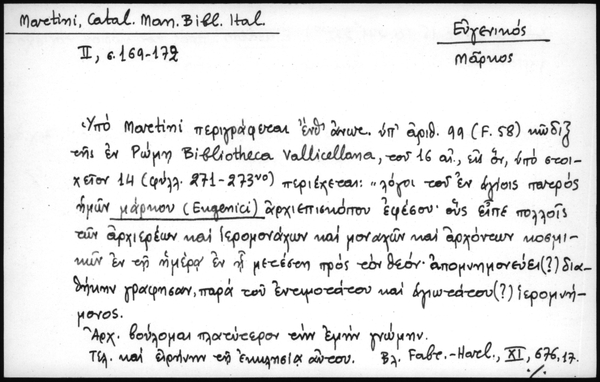 Martini, Catal. Man. Bibl. Ital.
Εὐγενικός
II, σ. 169-172
Μᾶρκος
Ὑπό Martini περιγράφεται ἔνθ' ἄνωτ. ὑπ' ἀριθ. 99 (F. 58) κῶδιξ
τῆς ἐν Ρώμῃ Bibliotheca Vallicellana, τοῦ 16 αἰ., εἰς ὅν, ὑπό στοι-
χεῖον 14 (φύλλ. 271-273vo) περιέχεται: "λόγοι τοῦ ἐν ἁγίοις πατρός
ἡμῶν μάρκου (Eugenici) ἀρχιεπισκόπου ἐφέσου· οὓς εἶπε πολλοῖς
τῶν ἀρχιερέων καί ἱερομονάχων καί μοναχῶν καί ἀρχόντων κοσμι-
κῶν ἐν τῇ ἡμέρᾳ ἐν ᾗ μετέστη πρός τόν θεόν· ἀπομνημονεύει(?) δια-
θήκην γραφησαν, παρά τοῦ ἐντιμοτάτου καί ἁγιωτάτου(?) ἱερομνή-
μονος.
Ἀρχ. βούλομαι πλατύτερον τήν ἐμήν γνώμην.
Τελ. καί εἰρήνην τῇ ἐκκλησίᾳ αὐτοῦ. Βλ. Fabr.-Harl., XI, 676,17.